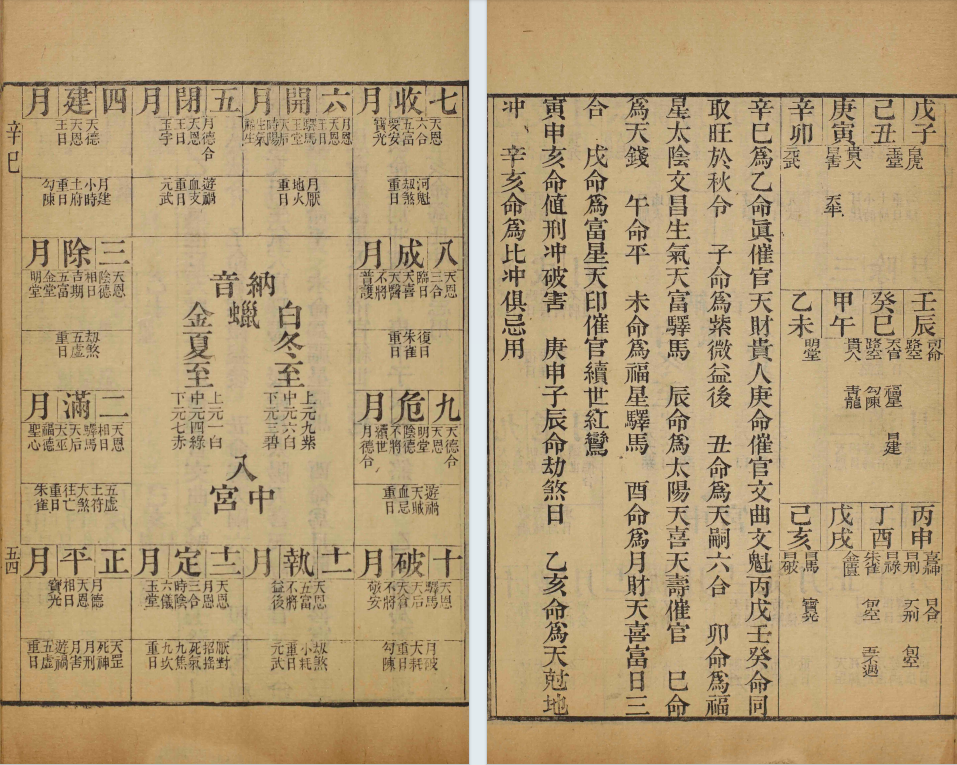 戊子 白虎
壬辰 司命 路空
丙申 喜神 日合 日刑 天刑 旬空
己丑 玉堂
癸巳 天官 福星 日建 路空 勾陳
丁酉 日祿 旬空 五不遇 朱雀
庚寅 貴人 天牢 日害
甲午 貴人 青龍
戊戌 金匱
辛卯 元武
乙未 明堂
己亥 日馬 寶光 日破
辛巳爲乙命眞催官天財貴人庚命催官文曲文魁丙戊壬癸命同
取旺於秋令 子命爲紫微益後 丑命爲天嗣六合 卯命爲福
星太陰文昌生氣天富驛馬 辰命爲太陽天喜天壽催官 巳命
爲天錢 午命平 未命爲福星驛馬 酉命爲月財天喜富日三
合 戌命爲富星天印催官續世紅鸞
寅申亥命値刑冲破害 庚申子辰命劫煞日 乙亥命爲天尅地
冲 辛亥命爲比冲俱忌用
七收月
天恩 六合 五富 要安 寶光
河魁 劫煞 重日
六開月
月恩 天恩 王日 驛馬 天后 時陽 生氣
月厭 地火 重日
五閉月
月德合 天恩 王日 玉宇
遊禍 血支 重日 元武
四建月
天德 天恩 王日
月建 小時 土府 重日 勾陳
辛巳
八成月
天恩 三合 臨日 天喜 天醫 不將 普護
復日 朱雀 重日
三除月
天恩 陰德 相日 吉期 五富 金堂 明堂
劫煞 五虛 重日
納音
白蠟金
冬至 上元九紫 中元六白 下元三碧
夏至 上元一白 中元四綠 下元七赤
入中宮
九危月
天德合 天恩 明堂 陰德 不將 續世 月德合
遊禍 天賊 血忌 重日
二滿月
天恩 相日 驛馬 天后 天巫 福德 聖心
五虛 土符 大煞 往亡 重日 朱雀
十破月
天恩 驛馬 天后 天倉 不將 敬安
月破 大耗 重日 勾陳
十一執月
天恩 五富 不將 益後
劫煞 小耗 重日 元武
十二定月
天恩 月恩 三合 時陰 六儀 玉堂
厭對 招搖 死氣 九焦 九坎 重日
正平月
月德 天恩 相日 寶光
天罡 死神 月刑 月害 遊禍 五虛 重日
五四